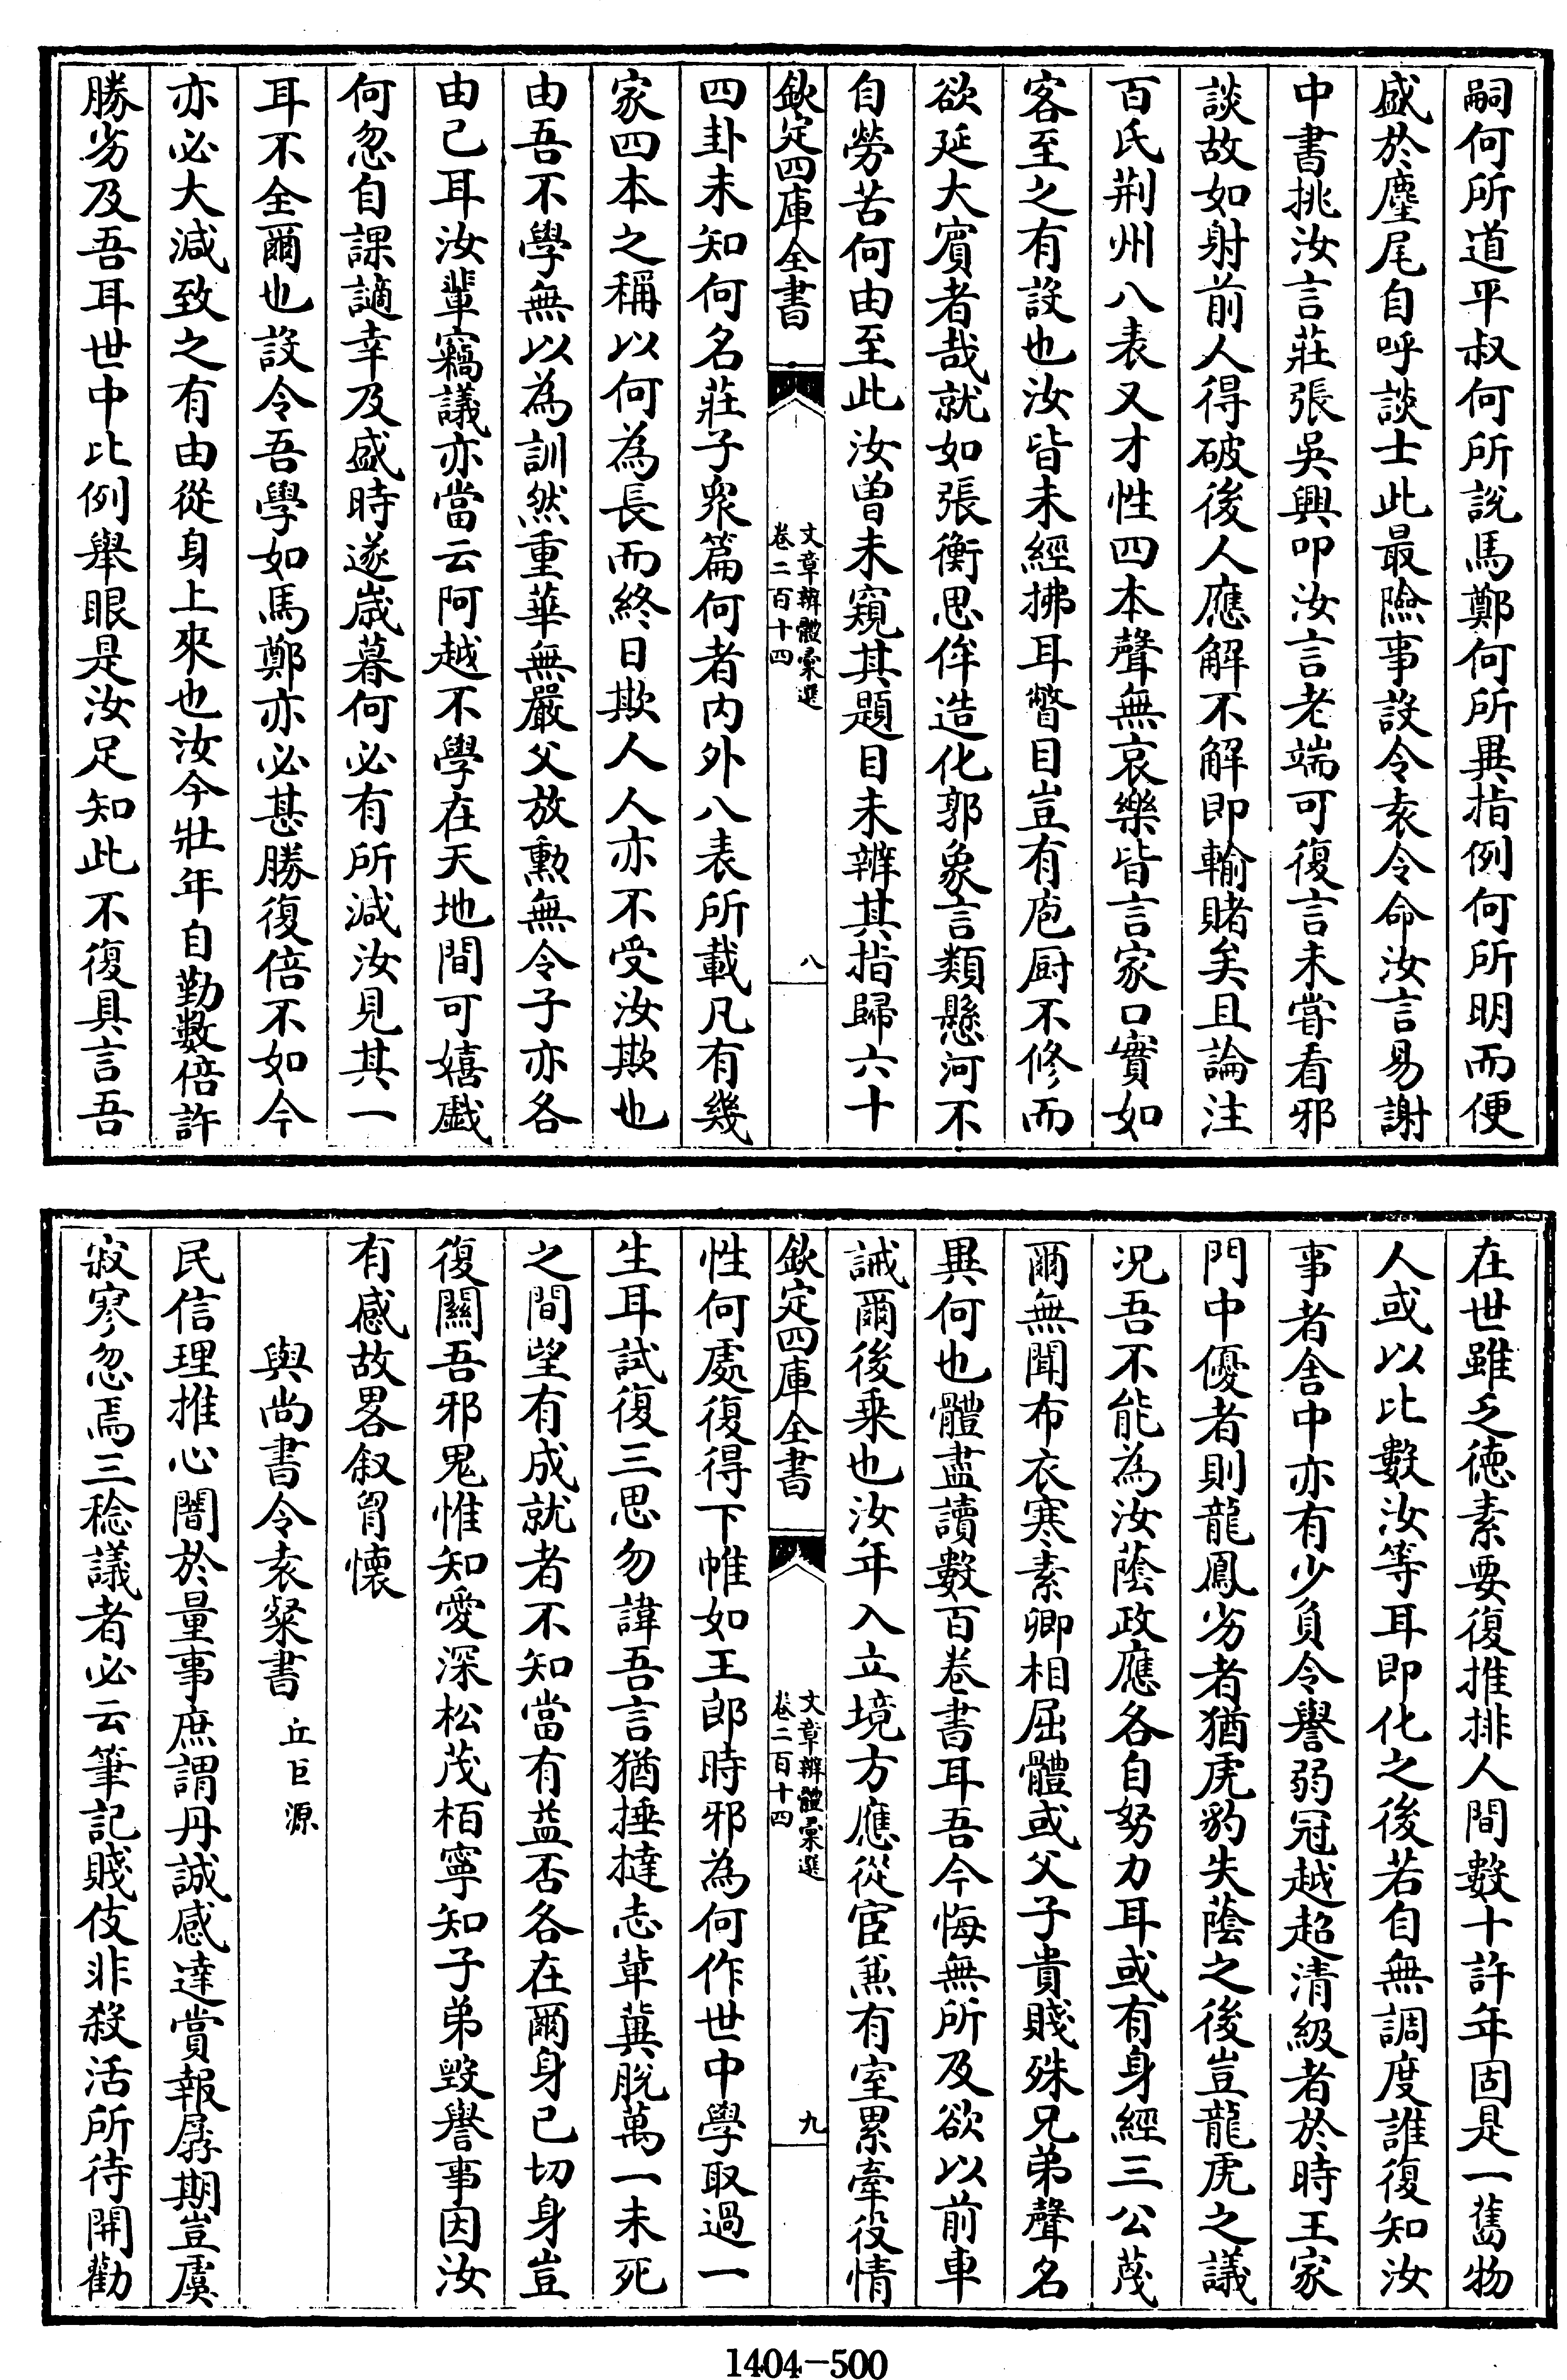 嗣何所道平叔何所說馬鄭何所異指例何所明而便
盛於麈尾自呼談士此最險事設令袁令命汝言易謝
中書挑汝言莊張吳興叩汝言老端可復言未嘗看邪
談故如射前人得破後人應解不解即輸賭矣且論注
百氏荆州八表又才性四本聲無哀樂皆言家口實如
客至之有設也汝皆未經拂耳瞥目豈有庖厨不修而
欲延大賓者哉就如張衡思侔造化郭象言類懸河不
自勞苦何由至此汝曾未窺其題目未辨其指歸六十
欽定四庫全書
文章辨體彚選
卷二百十四
八
四卦未知何名莊子衆篇何者内外八表所載凡有幾
家四本之稱以何為長而終日欺人人亦不受汝欺也
由吾不學無以為訓然重華無嚴父放勲無令子亦各
由己耳汝輩竊議亦當云阿越不學在天地間可嬉戲
何忽自課謫幸及盛時逐嵗暮何必有所減汝見其一
耳不全爾也設令吾學如馬鄭亦必甚勝復倍不如今
亦必大減致之有由從身上來也汝今壯年自勤數倍許
勝劣及吾耳世中比例舉眼是汝足知此不復具言吾
在世雖乏徳素要復推排人間數十許年固是一舊物
人或以比數汝等耳即化之後若自無調度誰復知汝
事者舍中亦有少負令譽弱冠越超清級者於時王家
門中優者則龍鳳劣者猶虎豹失蔭之後豈龍虎之議
况吾不能為汝蔭政應各自努力耳或有身經三公蔑
爾無聞布衣寒素卿相屈體或父子貴賤殊兄弟聲名
異何也體盡讀數百卷書耳吾今悔無所及欲以前車
誡爾後乗也汝年入立境方應從宦兼有室累牽役情
欽定四庫全書
文章辨體彚選
卷二百十四
九
性何處復得下帷如王郎時邪為何作世中學取過一
生耳試復三思勿諱吾言猶捶撻志輩冀脫萬一未死
之間望有成就者不知當有益否各在爾身已切身豈
復闗吾邪鬼惟知愛深松茂栢寧知子弟毀譽事因汝
有感故畧叙胷懷
與尚書令袁粲書 丘巨源
民信理推心闇於量事庶謂丹誠感達賞報孱期豈虞
寂寥忽焉三稔議者必云筆記賤伎非殺活所待開勸
1404-500